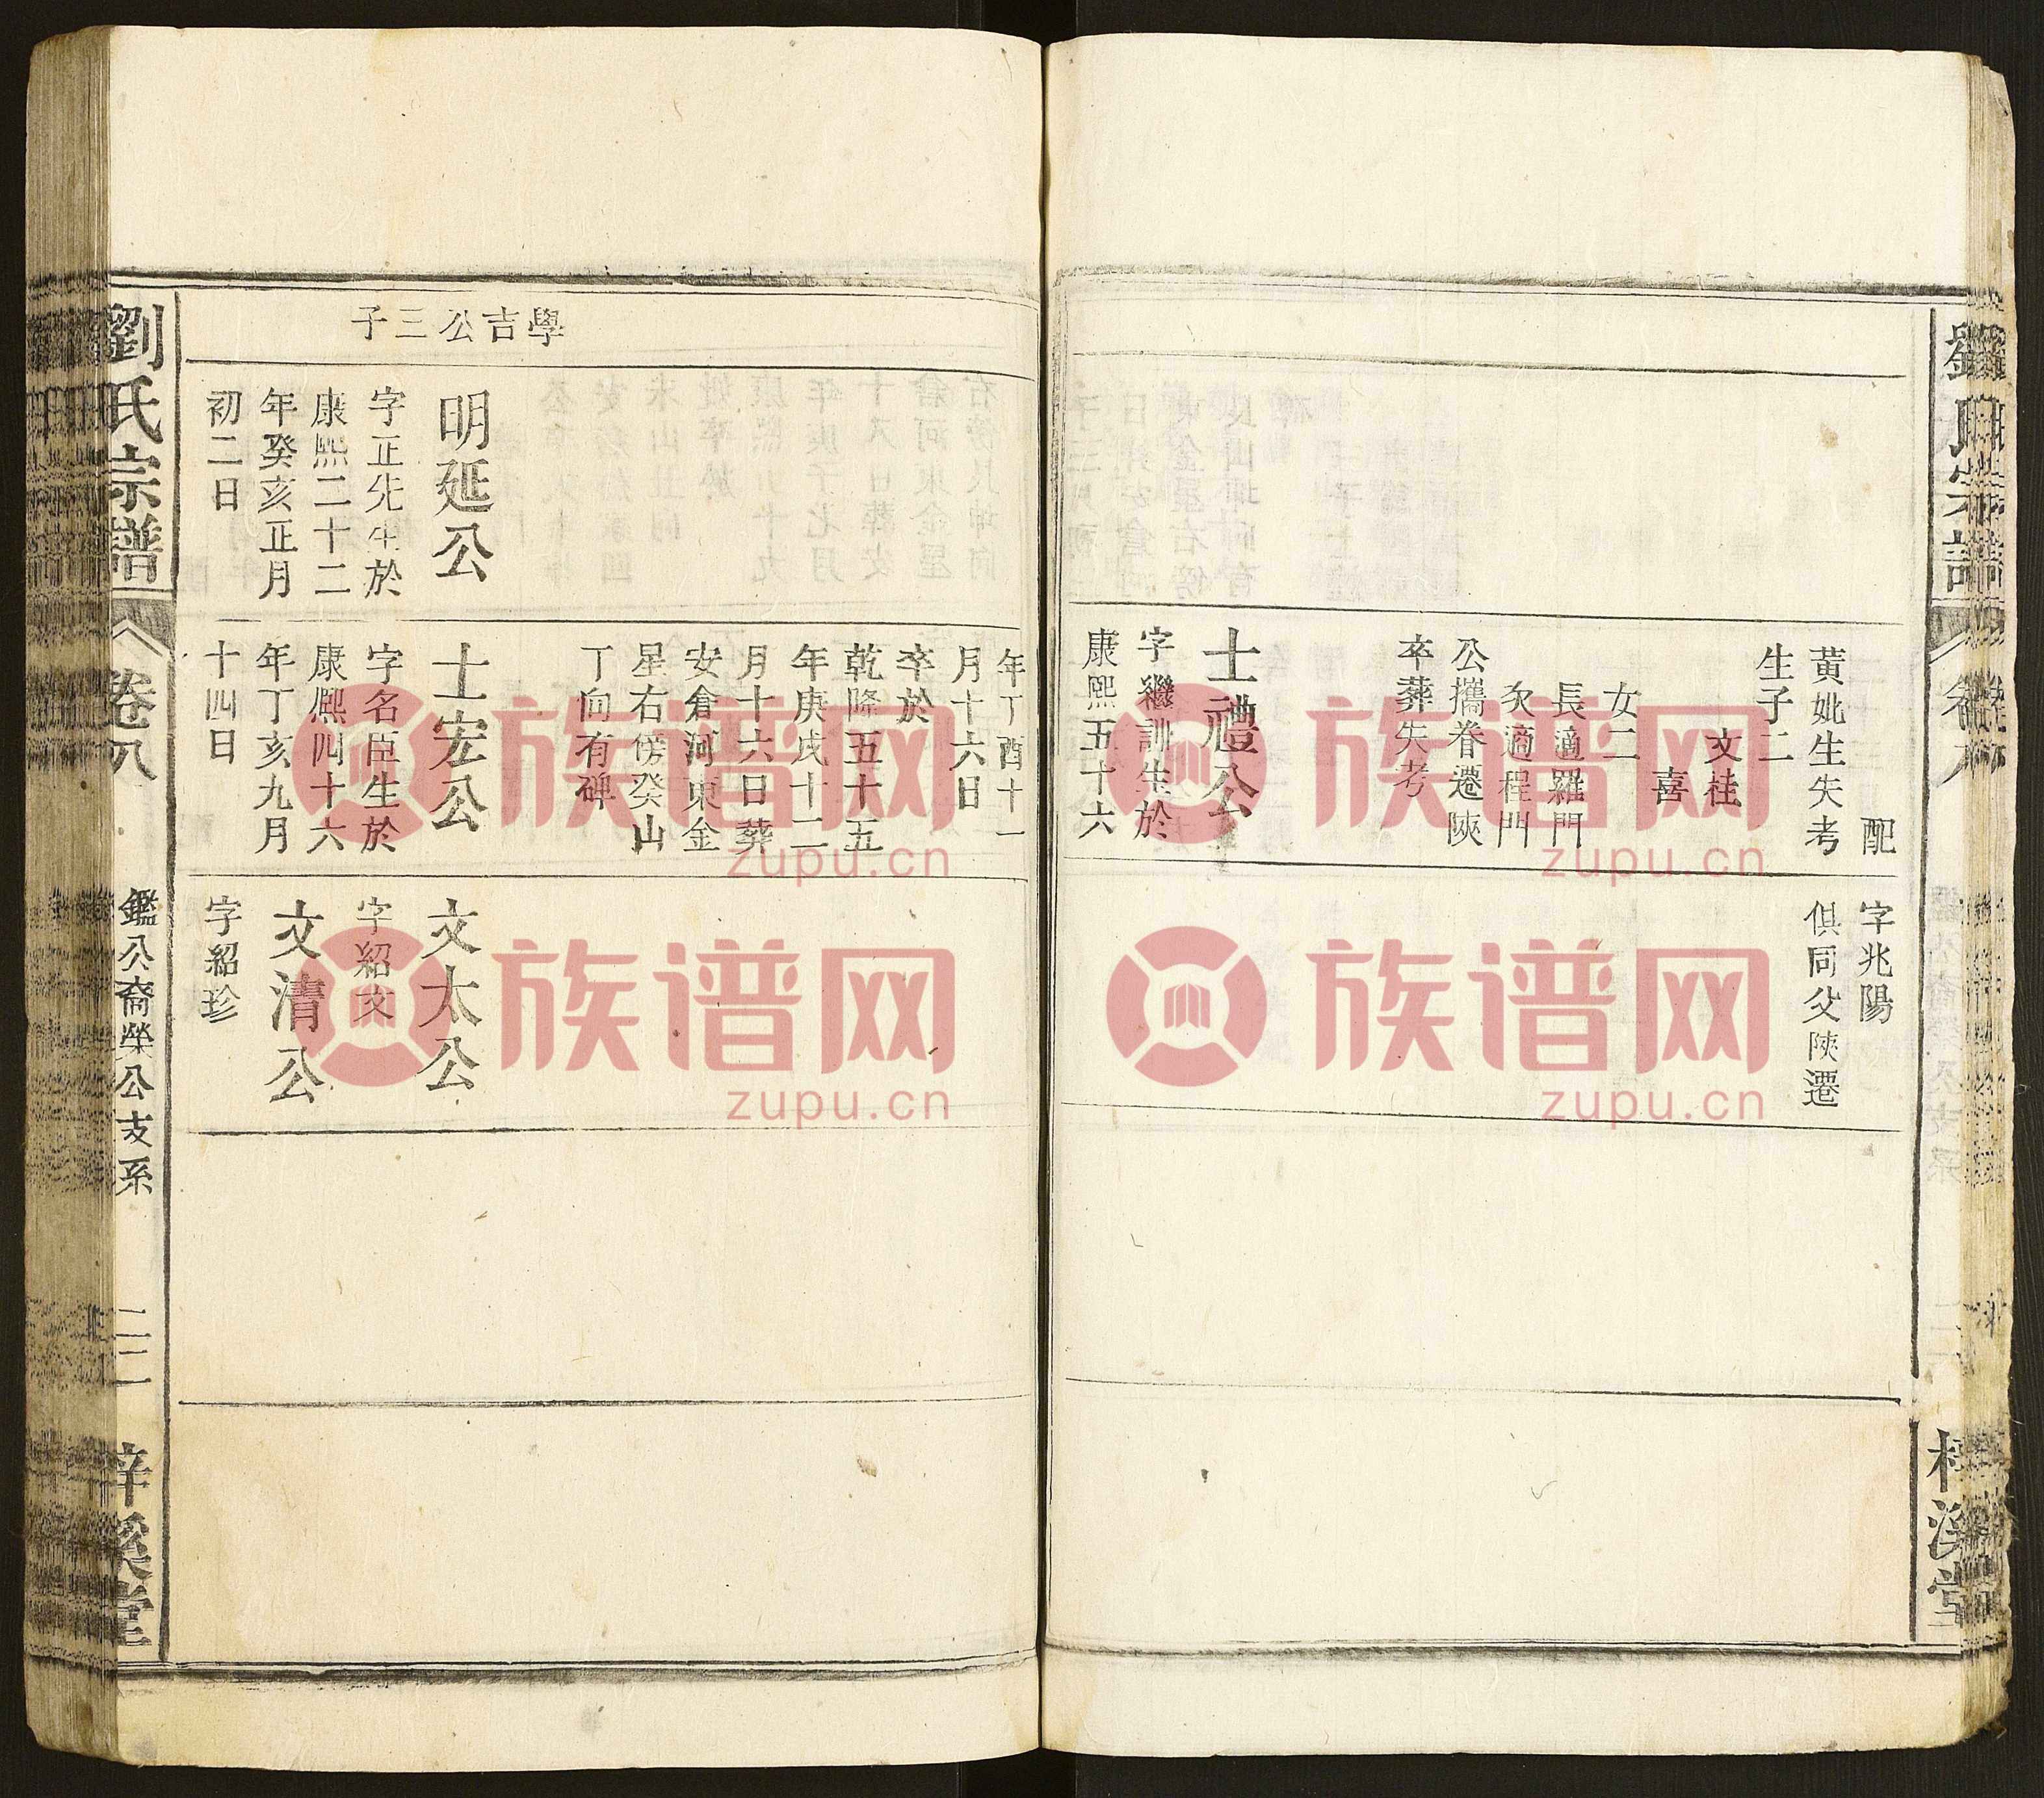 配
黃妣生失考
生子二
文桂
喜
女二
長適羅門
次適程門
公攜眷遷陝
卒葬失考
士禮公
字繼訓生於
康熙五十六
字兆陽
俱同父陝遷
梓溪堂
學吉公三子
明延公
字正先生於
康熙二十二
年癸亥正月
初二日
年丁酉十一
月十六日
卒於
乾隆五十五
年庚戌十二
月十六日葬
安倉河東金
星右傍癸山
丁向有碑
士宏公
字名臣生於
康熙四十六
年丁亥九月
十四日
文太公
字紹文
文清公
字紹珍
劉氏宗譜
卷八
鑑公裔榮公支系
二二
梓溪堂
族谱网
zupu.cn
族谱网
zupu.cn
族谱网
zupu.cn
族谱网
zupu.cn